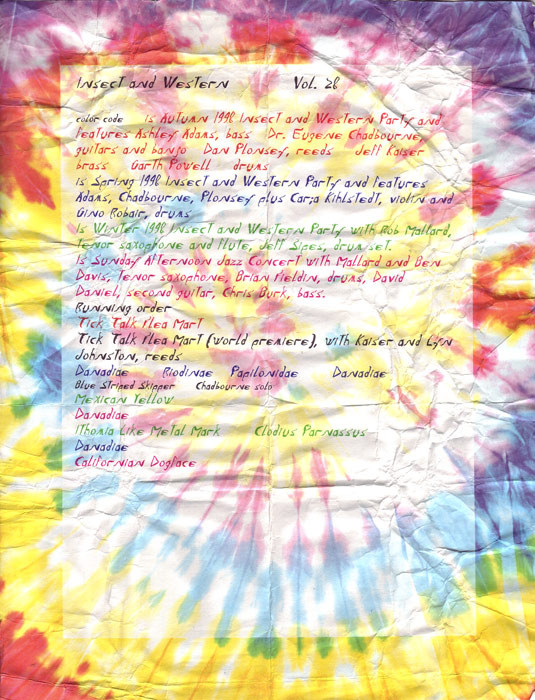 Insect and Western Vol. 28
color code is Autumn 1998 Insect and Western Party and
features Ashley Adams, bass Dr. Eugene Chadbourne,
guitars and banjo Dan Plonsey, reeds Jeff Kaiser
brass Garth Powell drums
is Spring 1998 Insect and Western Party and features
Adams, Chadbourne, Plonsey plus Carja Kihlstedt, violin and
Gino Robair, drums
is Winter 1998 Insect and Western Party with Rob Mallard,
Tenor saxophone and flute, Jeff Sipes, drum set.
is Sunday Afternoon Jazz Concert with Mallard and Ben
Davis, Tenor saxophone, Brian Fieldin, drums, David
Daniel, second guitar, Chris Burk, bass.
Running order
Tick Talk Flea Mart
Tick Talk Flea Mart (world premiere), with Kaiser and Lyn
Johnston, reeds
Danadiae Riodinae Papilonidae Danadiae
Blue Striped Skipper Chadbourne solo
Mexican Yellow
Danadiae
Ithomia Like Metal Mark Clodius Parnassus
Danadiae
Californian Dogface